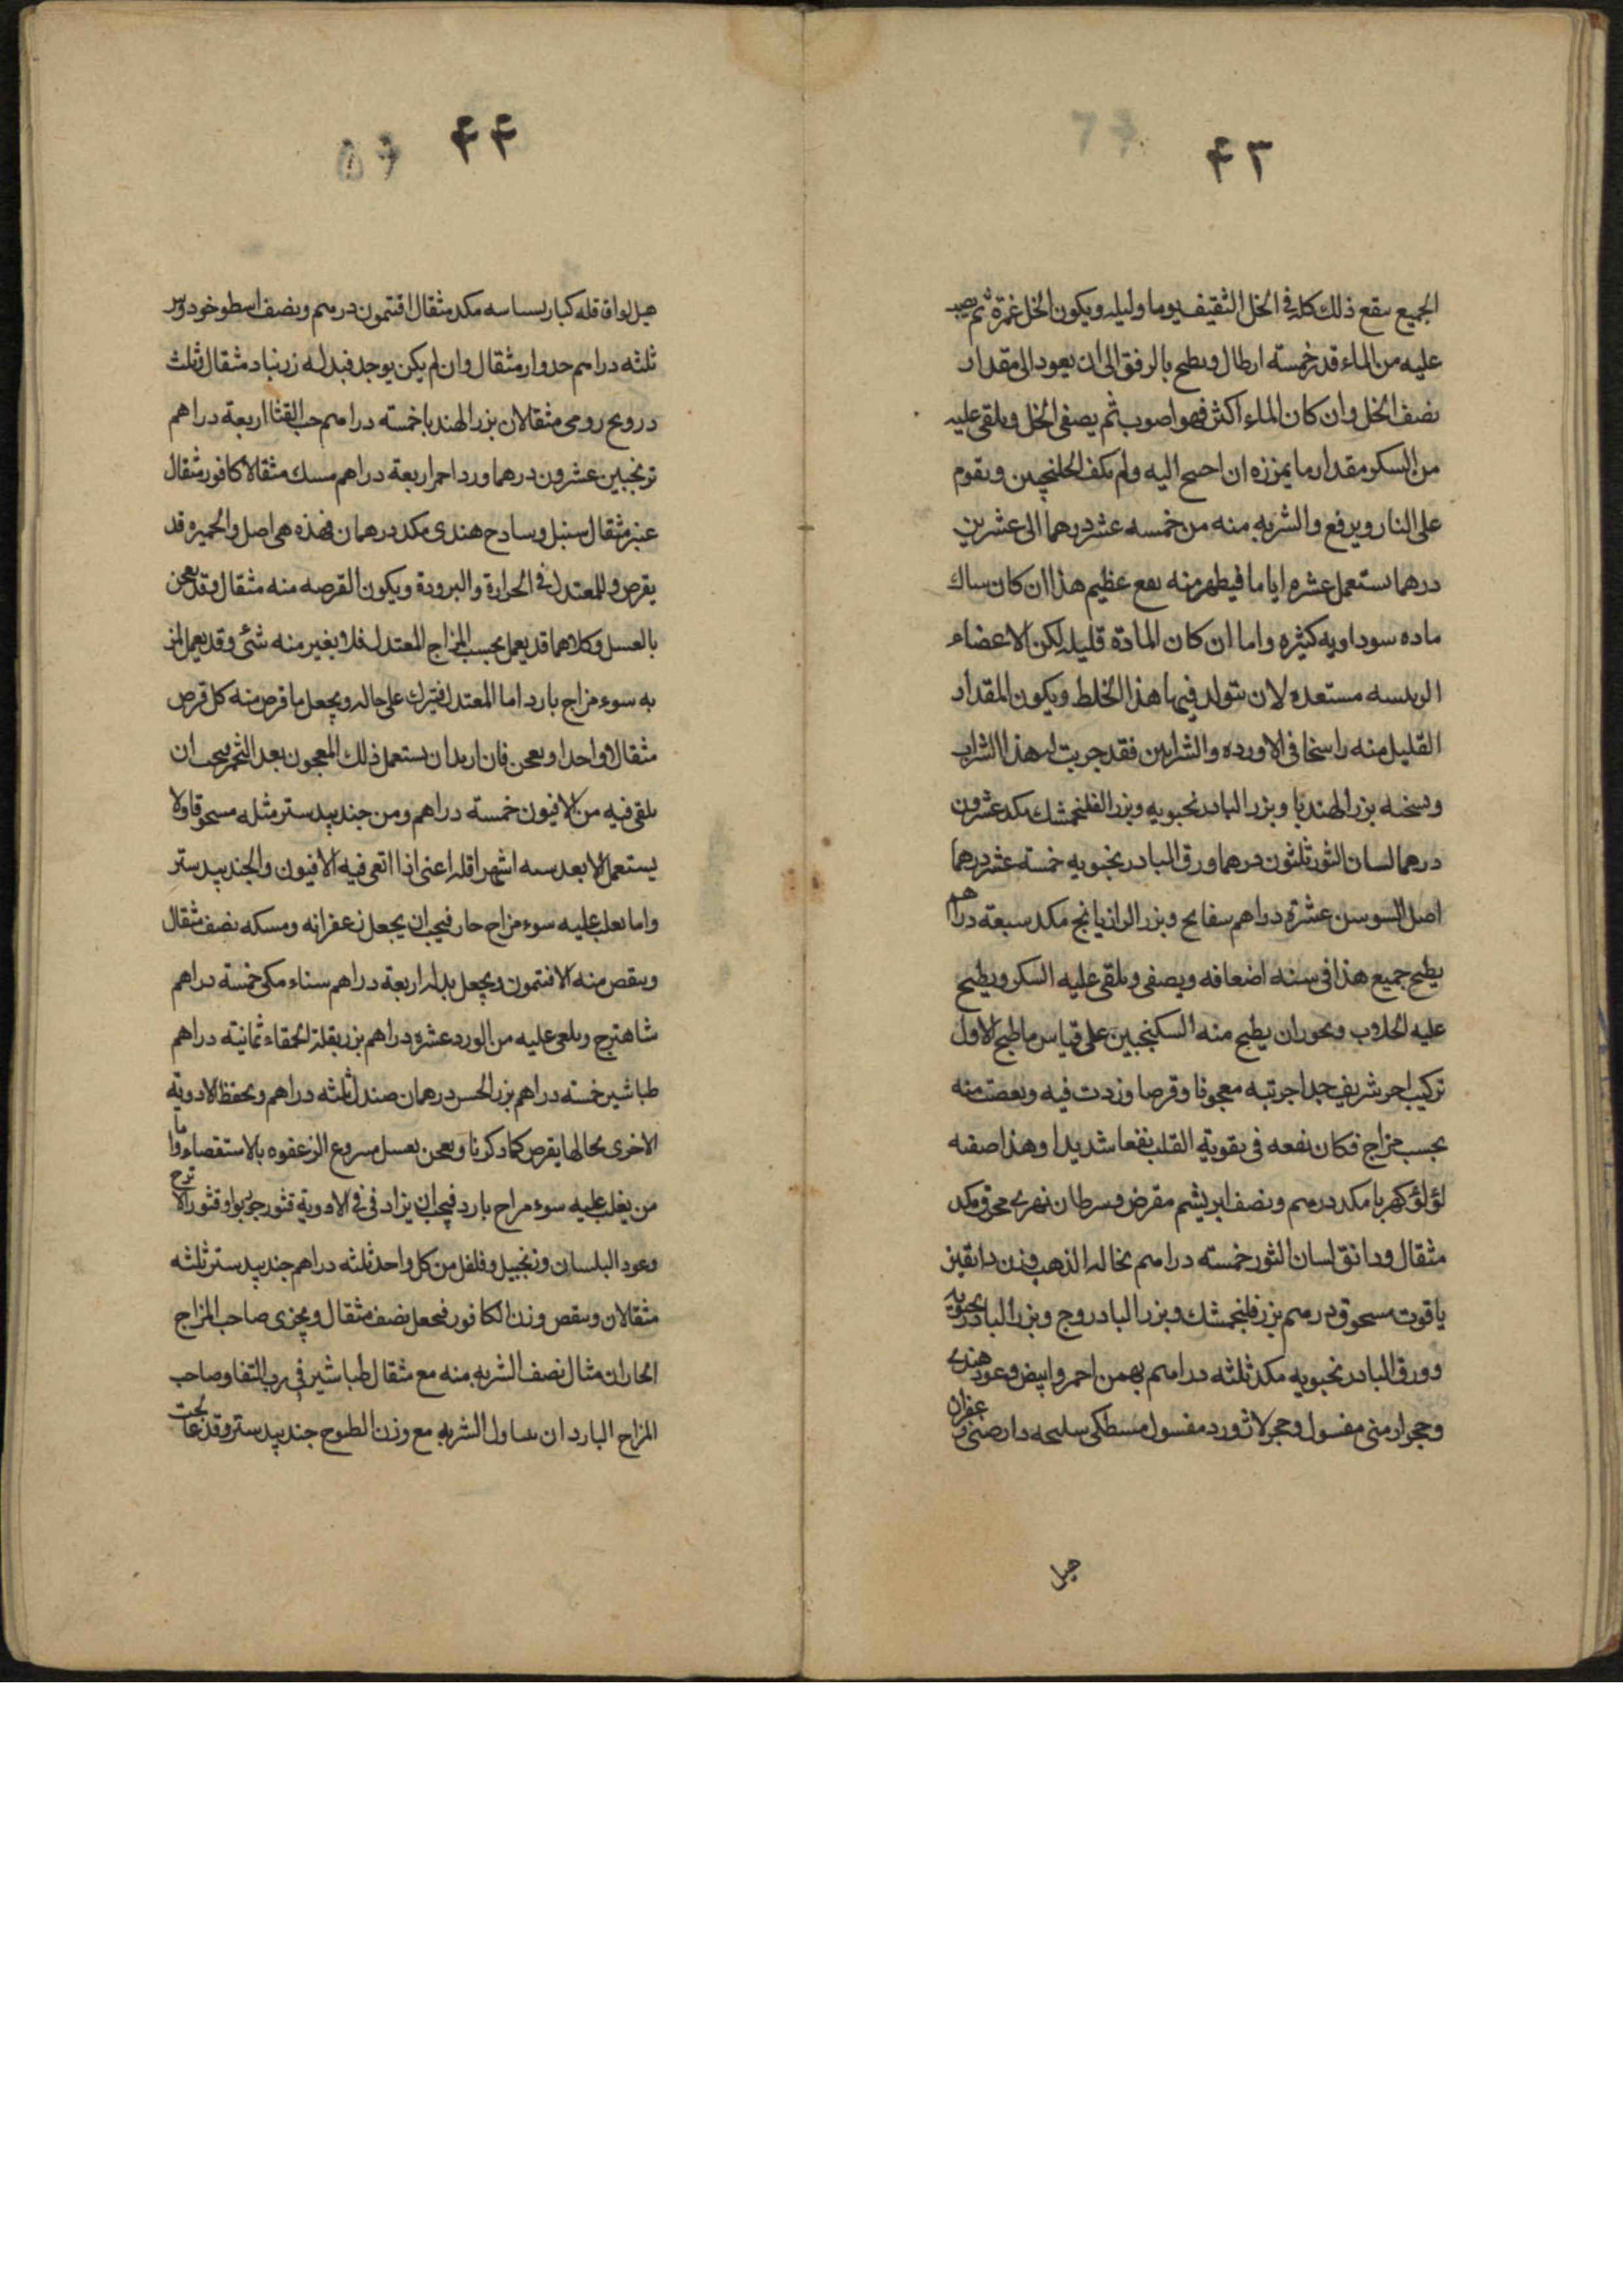 ۴۳
الجميع ينقع ذلك كله في الخل الثقيف يوما وليله ويكون الخل غمرة ثم يصب
عليه من الماء قدر خمسته ارطال ويطبح بالرفق الى ان يعود الى مقدار
نصف الخل وان كان الماء اكثر فهو اصوب ثم يصفى الخل ويلقى عليه
من السكر مقدار ما يمززه ان احتيج اليه ولم يكف الجلنجبين ويقوم
على النار ويرفع والشربه منه من خمسه عشر درهما الى عشرين
درهما يستعمل عشره اياما فيظهر منه نفع عظيم هذا ان كان هناك
ماده سوداويه كثيره واما ان كان المادة قليله لكن الاعضاء
الرئيسه مستعده لان تتولد فيها هذا الخلط ويكون المقدار
القليل منه راسخا في الاورده والشرايين فقد جربت له هذا الشراب
ونسخته بزر الهندبا وبزر البادرنجبويه وبزر الفلنجمشك مكد عشرون
درهما لسان الثور ثلثون درهما ورق البادرنجبويه خمسته عشر درهما
اصل السوسن عشرة دراهم بسفايج وبزر الرازيانج مكد سبعة دراهم
يطبح جميع هذا في سته اضعافه ويصفى ويلقى عليه السكر ويطبح
عليه الجلاب ويجوز ان يطبح منه السكنجبين على قياس ما طبح الاول
تركيب اخر شريف جدا جربته معجونا وقرصا وزدت فيه ونقصت منه
بحسب مزاج فكان نفعه في تقوية القلب نفعا شديدا وهذا صفته
لؤلؤ كهربا مكد درهم ونصف ابريشم مقرض وسرطان نهرى محرق مكد
مثقال ودانق لسان الثور خمسته دراهم نخاله الذهب وزن دانقين
ياقوت مسحوق درهم بزر فلنجمشك وبزر البادروج وبزر البادرنجبويه
وورق البادرنجبويه مكد ثلثه دراهم بهمن احمر وابيض وعود هندى
وحجر ارمنى مغسول وحجر لاژورد مغسول مسطكى سليخه دارصينى وزعفران
هيل
۴۴
هيل بوا قاقله كبار بسباسه مكد مثقال افتيمون درهم ونصف اسطوخودوس
ثلثه دراهم جدوار مثقال وان لم يكن يوجد فبدله زرنباد مثقال وثلث
درونج رومى مثقالان بزر الهندبا خمسته دراهم حب القثا اربعة دراهم
ترنجبين عشرون درهما ورد احمر اربعة دراهم مسك مثقالا كافور مثقال
عنبر مثقال سنبل وسادج هندى مكد درهمان فهذه هى اصل والخميره قد
يقرص وللمعتدل في الحرارة والبرودة ويكون القرصه منه مثقال وقد يعجن
بالعسل وكلاهما قد يعمل بحسب المزاج المعتدل فلا يغير منه شئ وقد يعمل لمن
به سوء مزاج بارد اما المعتدل فيترك على حاله ويجعل ما قرص منه كل قرص
مثقالا واحدا ويعجن فان اريد ان يستعمل ذلك المعجون بعد التخمر يجب ان
يلقى فيه من الافيون خمسته دراهم ومن جندبيدستر مثله مسحوقا ولا
يستعمل الا بعد سته اشهر اقله اعنى اذا القى فيه الافيون والجندبيدستر
واما يغلب عليه سوء مزاج حار فيجب ان يجعل زعفرانه ومسكه نصف مثقال
وينقص منه الافتيمون ويجعل بدله اربعة دراهم سناء مكى خمسته دراهم
شاهترج ويلقى عليه من الورد عشره دراهم بزر بقلة الحمقاء ثمانيته دراهم
طباشير خمسته دراهم بزر الخس درهمان صندل ثلثه دراهم ويحفظ الادوية
الاخرى بحالها يقرص كما ذكرنا ويعجن بعسل منزوع الرغوه بالاستقصاء واما
من يغلب عليه سوء مزاج بارد فيجب ان يزاد في في الادوية قشور جوزبوا وقشور الاترج
وعود البلسان وزنجبيل وفلفل من كل واحد ثلثه دراهم جندبيدستر ثلثه
مثقالان وينقص وزن الكافور فيجعل نصف مثقال ويجزى صاحب المزاج
الحار ان تناول نصف الشربه منه مع مثقال طباشير في رب التفا وصاحب
المزاج البارد ان يتناول الشربه مع وزن الطسوج جندبيدستر وقد عالجت